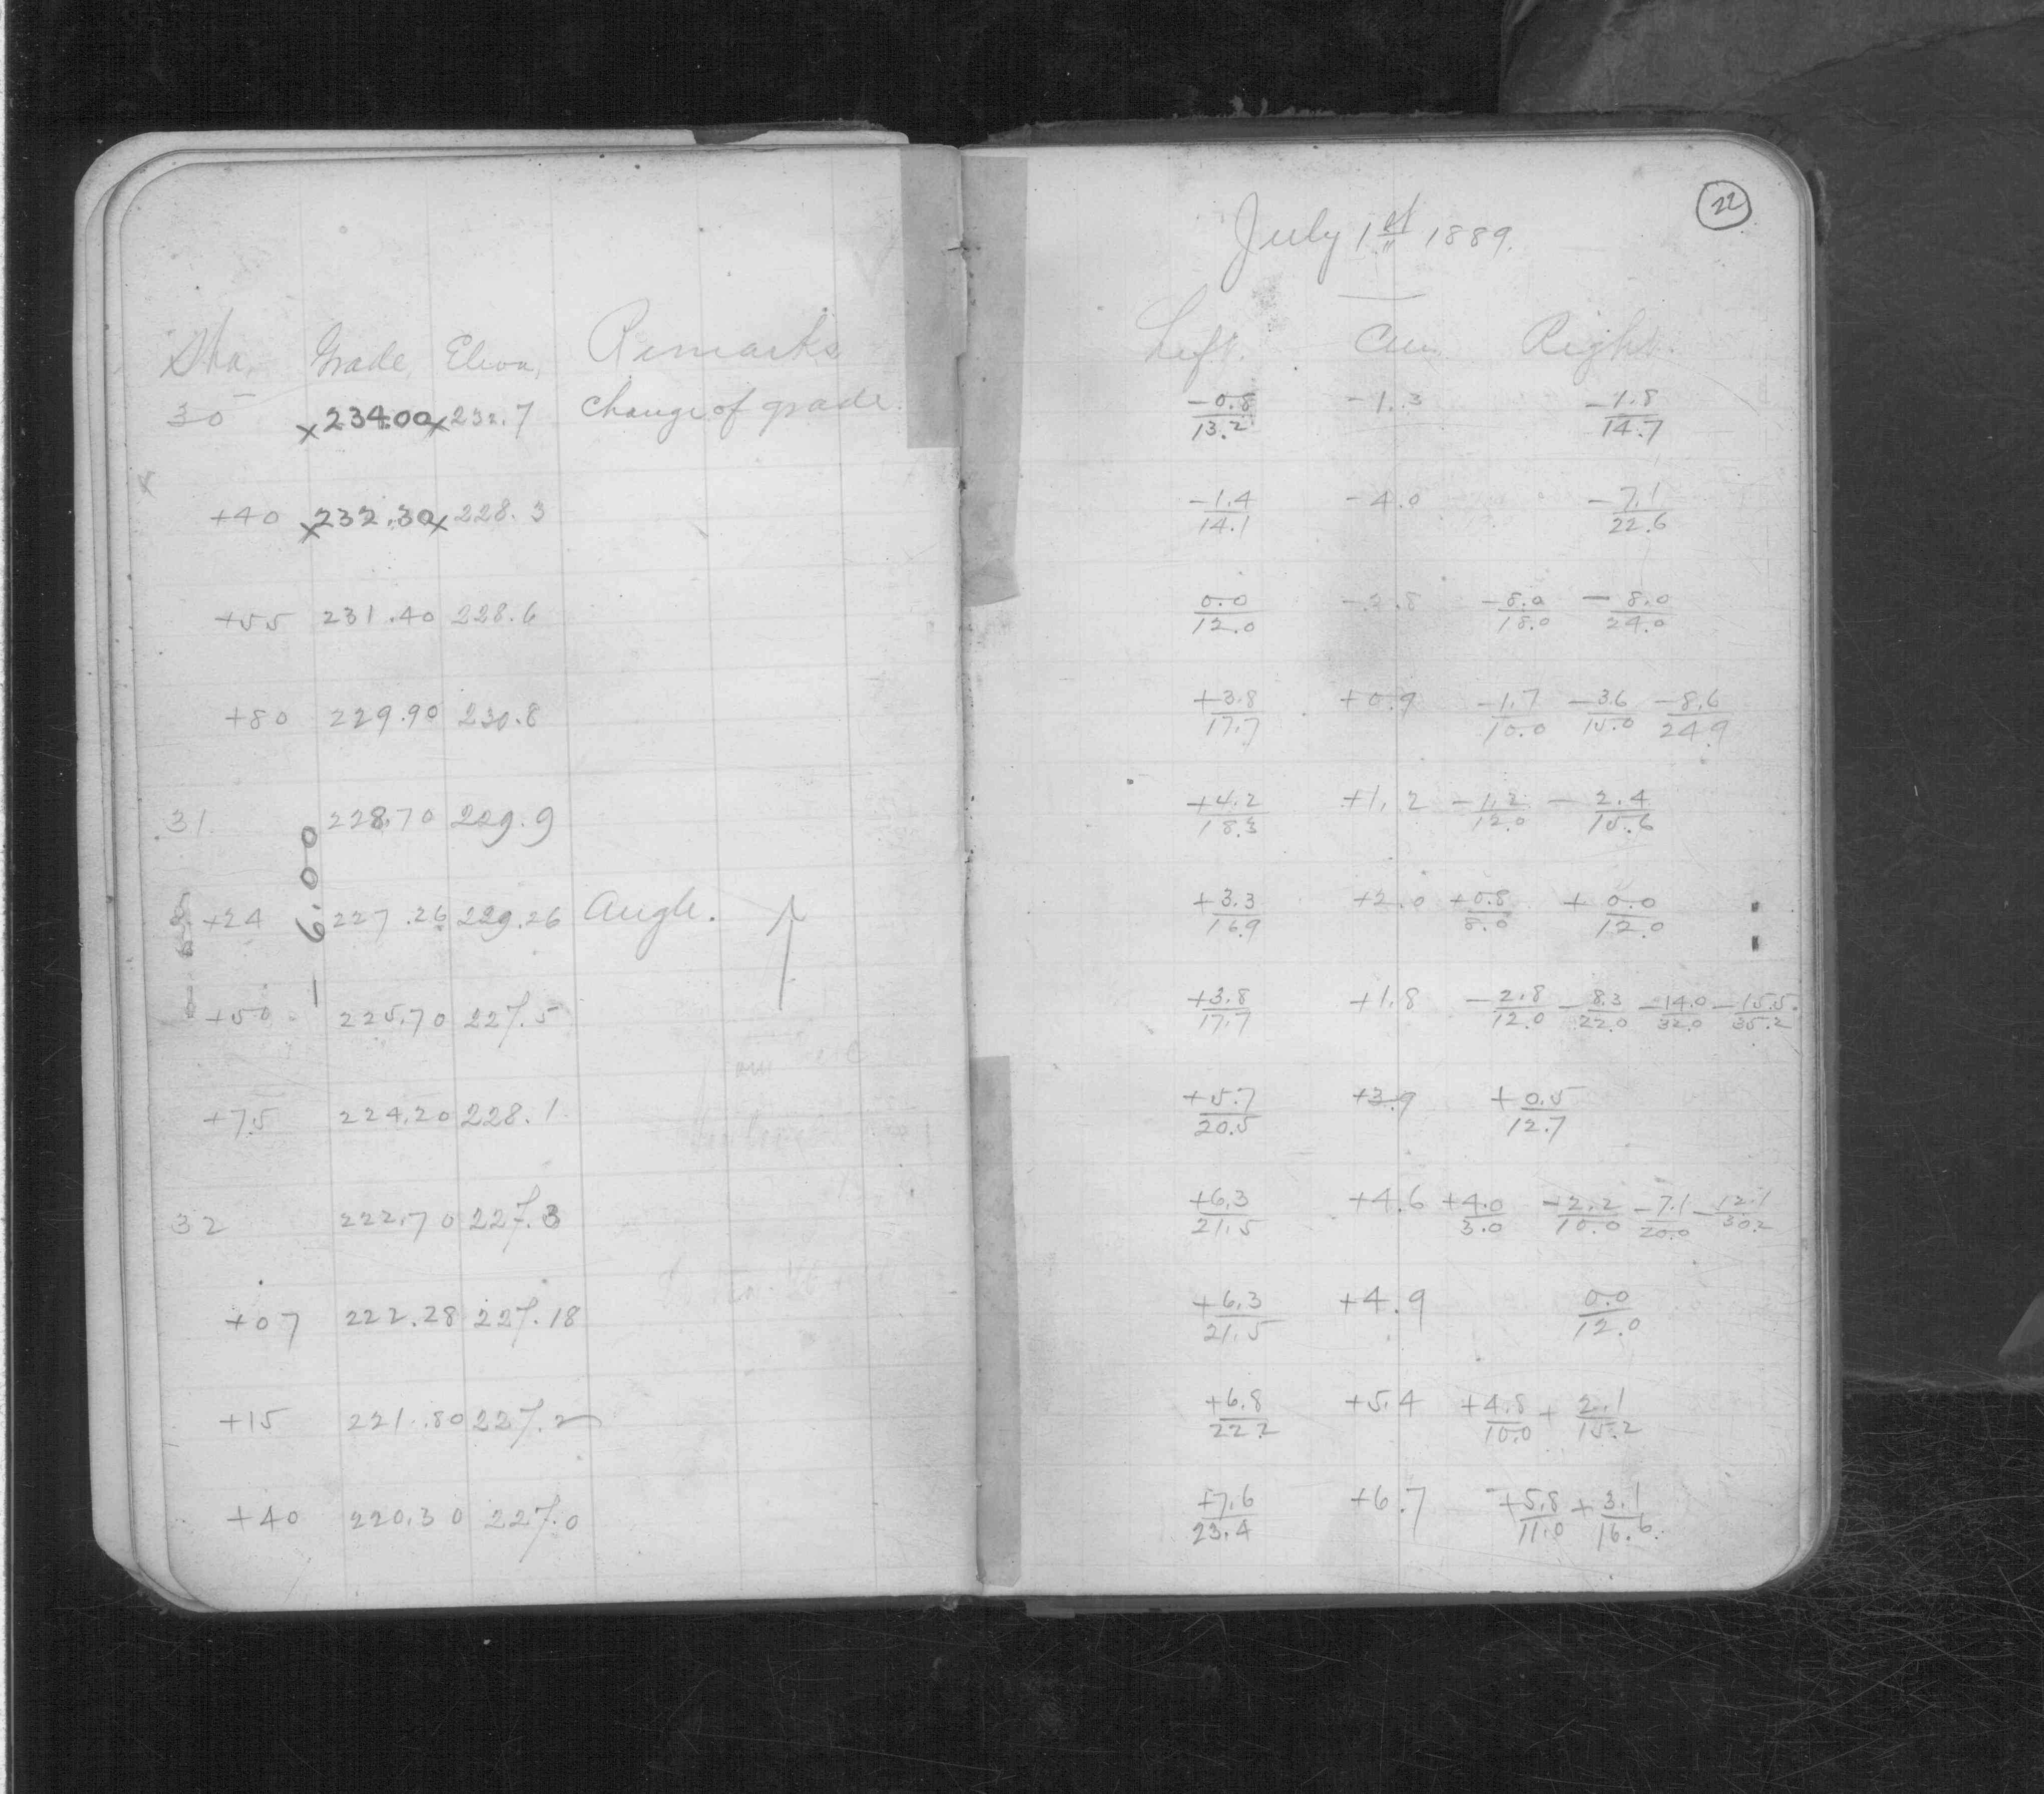 Sta. Grade, Eleva, Remarks
30 x234.00x 232.7 Change of grade.
+40 x232.30x 228.3
+55 231.40 228.6
+80 229.90 230.8
31. 228.70 229.9
+24 227.26 229.26 Angle.
- 6.00
+50 225.70 227.5
+75 224.20 228.1
32 222.70 227.3
+07 222.28 227.18
+15 221.80 227.2
+40 220.30 227.0
22
July 1st 1889.
Left. Cen. Right.
-0.8/13.2 -1.3 -1.8/14.7
-1.4/14.1 -4.0 -7.1/22.6
0.0/12.0 -2.8 -8.0/18.0 -8.0/24.0
+3.8/17.7 +0.9 -1.7/10.0 -3.6/15.0 -8.6/24.9
+4.2/18.3 +1.2 -1.2/12.0 -2.4/15.6
+3.3/16.9 +2.0 +0.8/8.0 +0.0/12.0
+3.8/17.7 +1.8 -2.8/12.0 -8.3/22.0 -14.0/32.0 -15.5/35.2
+5.7/20.5 +3.9 +0.5/12.7
+6.3/21.5 +4.6 +4.0/3.0 -2.2/10.0 -7.1/20.0 -12.1/30.2
+6.3/21.5 +4.9 0.0/12.0
+6.8/22.2 +5.4 +4.8/10.0 +2.1/15.2
+7.6/23.4 +6.7 +5.8/11.0 +3.1/16.6